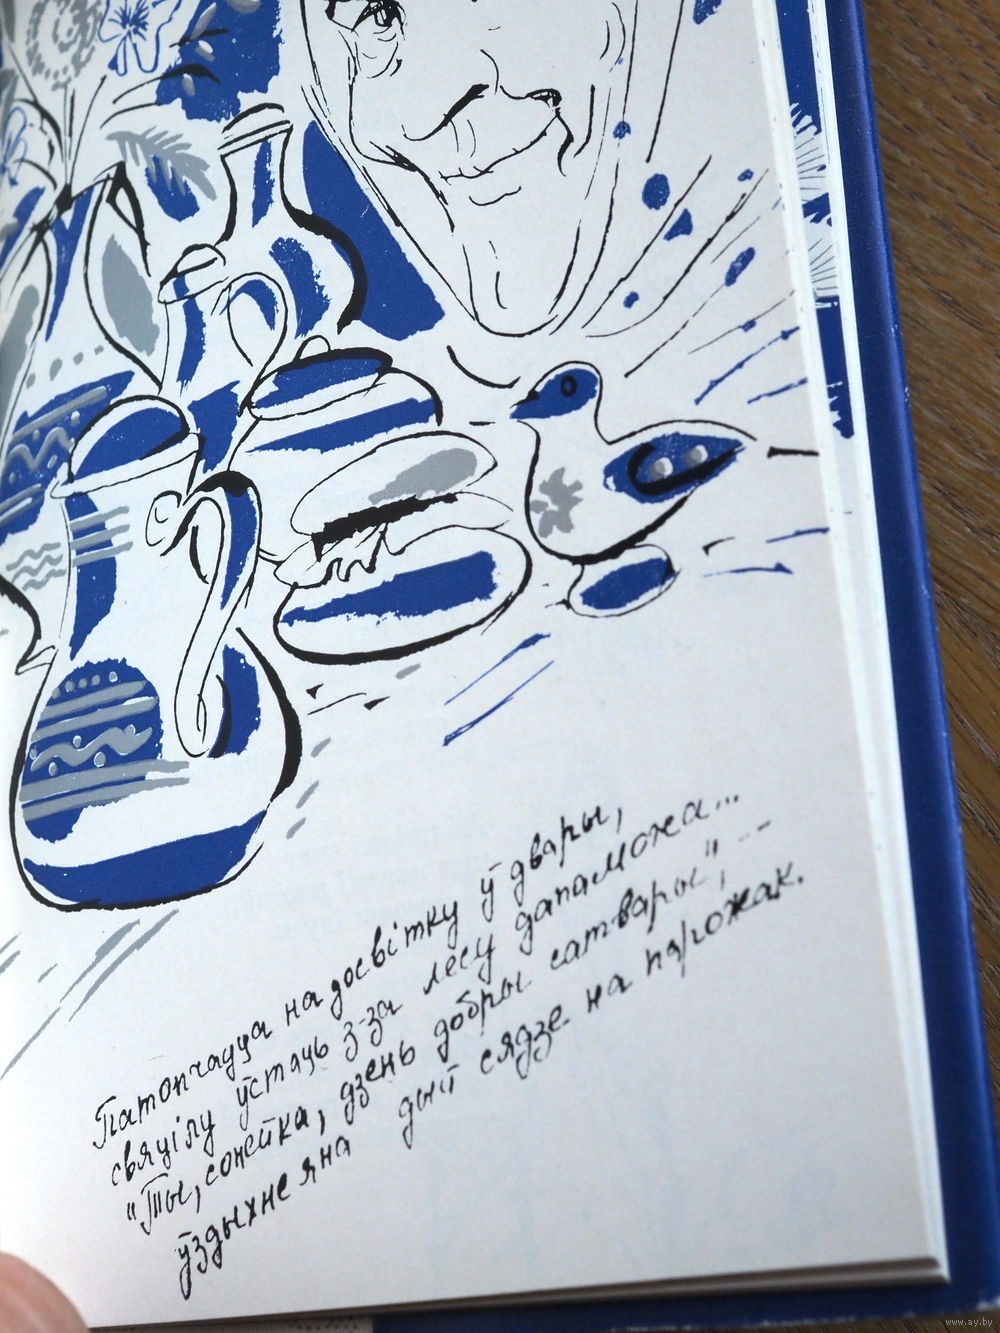 Патопчацца на досвітку ў двары,
свяцілу ўстаць з-за лесу дапаможа...
"Ты, сонейка, дзень добры сатвары", --
ўздыхне яна дый сядзе на парожак.
www.ay.by